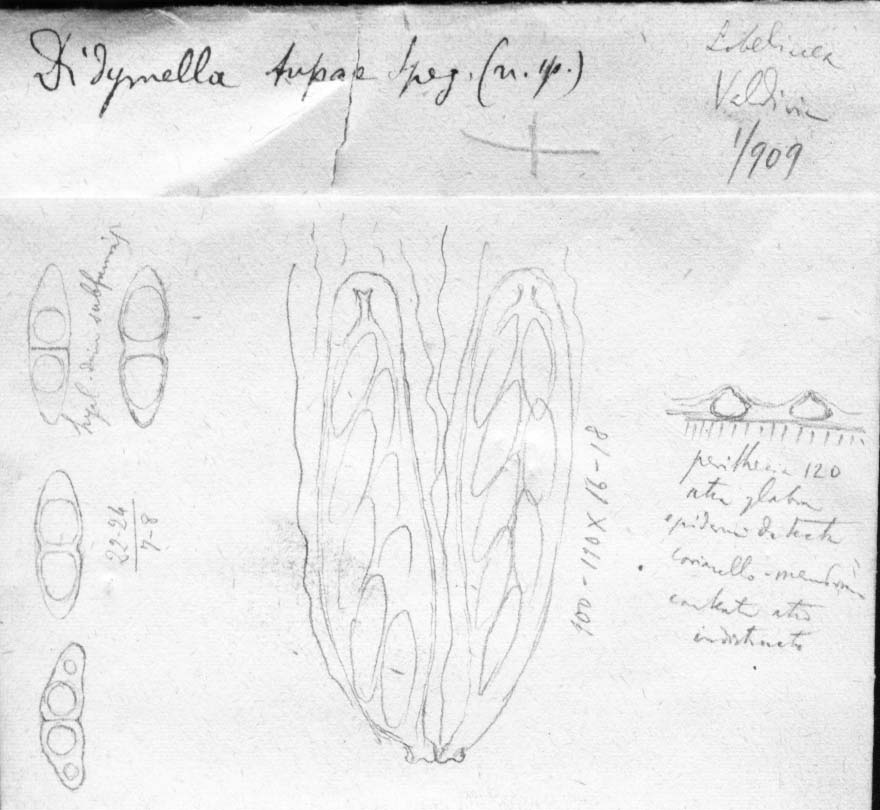 Didymella tupae Speg. (n. sp.)
Lobeliacea
Valdivia
1/909
hyal. dein subfumos
22-24
7-8
100-110 X 16-18
perithecia 120
atra glabra
epidermi
coriacello-membran
contextu atro
indistincto